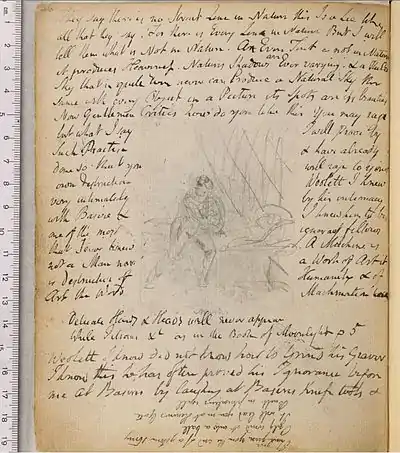 They say there is no Strait Line in Nature this Is a Lie like
all that they say. For there is Every Line in Nature But I will
tell them what is Not in Nature. An Even Tint is not in Nature
it produces Heaviness. Natures Shadows are Ever varying. & a Ruled
Sky that is quite Even never can Produce a Natural Sky the
same with every Object in a Picture its Spots are its beauties
Now Gentlemen Critics how do you like this You may rage
but what I say I will prove by
Such Practise & have already
done so that you will rage to your
own destruction Woolett I knew
very intimately by his intimacy
with Basire & I knew him to be
one of the most ignorant fellows
that I ever knew A Machine is
not a Man nor a Work of Art it
is Destructive of Humanity & of
Art the Word Machination
Delicate Hands & Heads will never appear
While Titians &c as in the Book of Moonlight p 5
Woolett I know did not know how to Grind his Graver
I know this he has often proved his Ignorance before
me at Basires by laughing at Basires knife tools &
I give you the end of a golden string
Only wind it into a ball
It will lead you in at Heavens gate
Built in Jerusalems wall
1 2 3 4 5 6 7 8 9 10 11 12 13 14 15 16 17 18 19